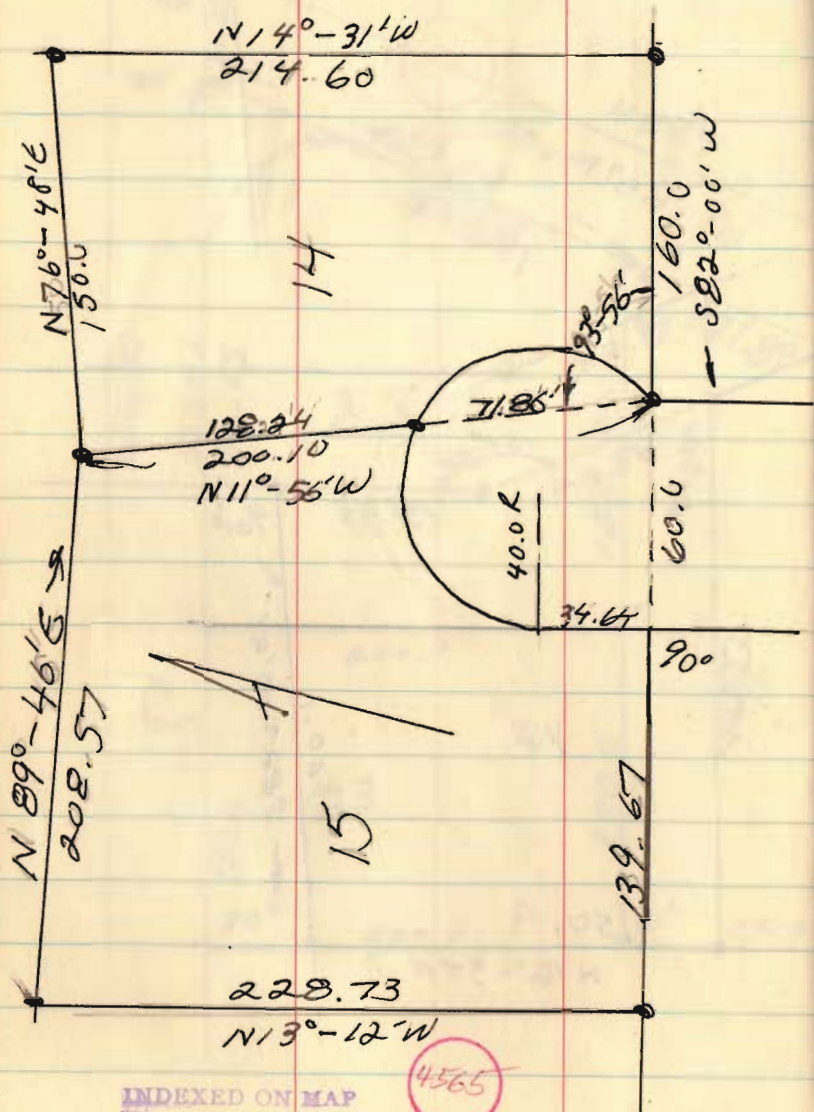 N14°-31'W
214.60
N76°-48'E
150.0
14
160.0
S82°-00'W
93°-56'
71.86'
128.24
200.10
N11°-56'W
40.0R
60.0
34.64
90°
N 89°-46'E
208.57
15
139.67
228.73
N13°-12'W
4565
INDEXED ON MAP